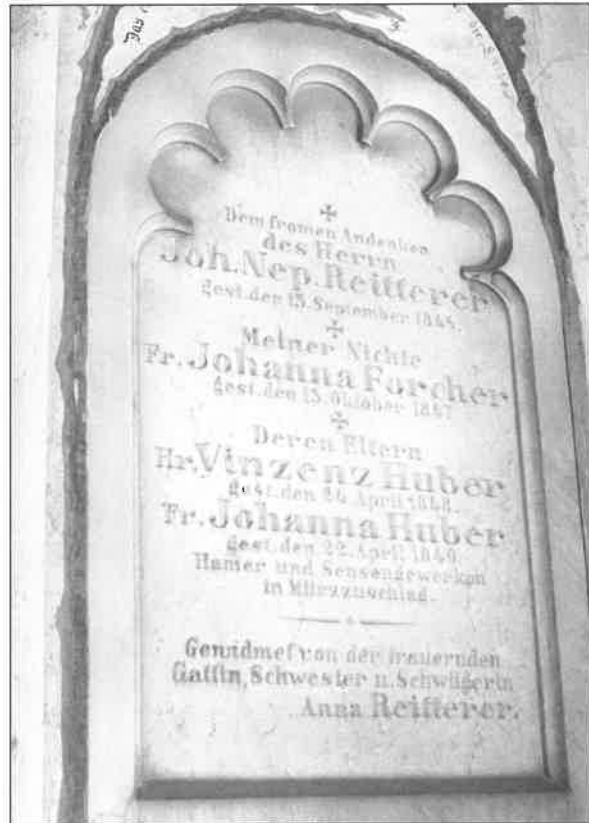 Das
✠
Dem fromen Andenken
des Herrn
Joh. Nep. Reitterer
gest. den 15. September 1845.
✠
Meiner Nichte
Fr. Johanna Forcher
gest. den 15. Oktober 1847
✠
Deren Eltern
Hr. Vinzenz Huber
gest. den 26. April 1848.
Fr. Johanna Huber
gest. den 22. April 1849.
Hamer und Sensengewerken
in Mürzzuschlag.
Gewidmet von der trauernden
Gattin, Schwester u. Schwägerin
Anna Reitterer.